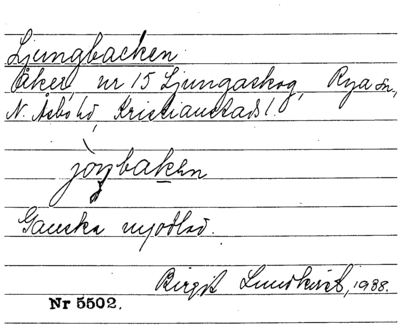 Ljungbacken
Åker, nr 15 Ljungaskog, Rya sn,
N. Åsbo hd, Kristianstads l.
jöŋbakən
Ganska nyodlad.
Birgit Lundkvist, 1938.
Nr 5502.